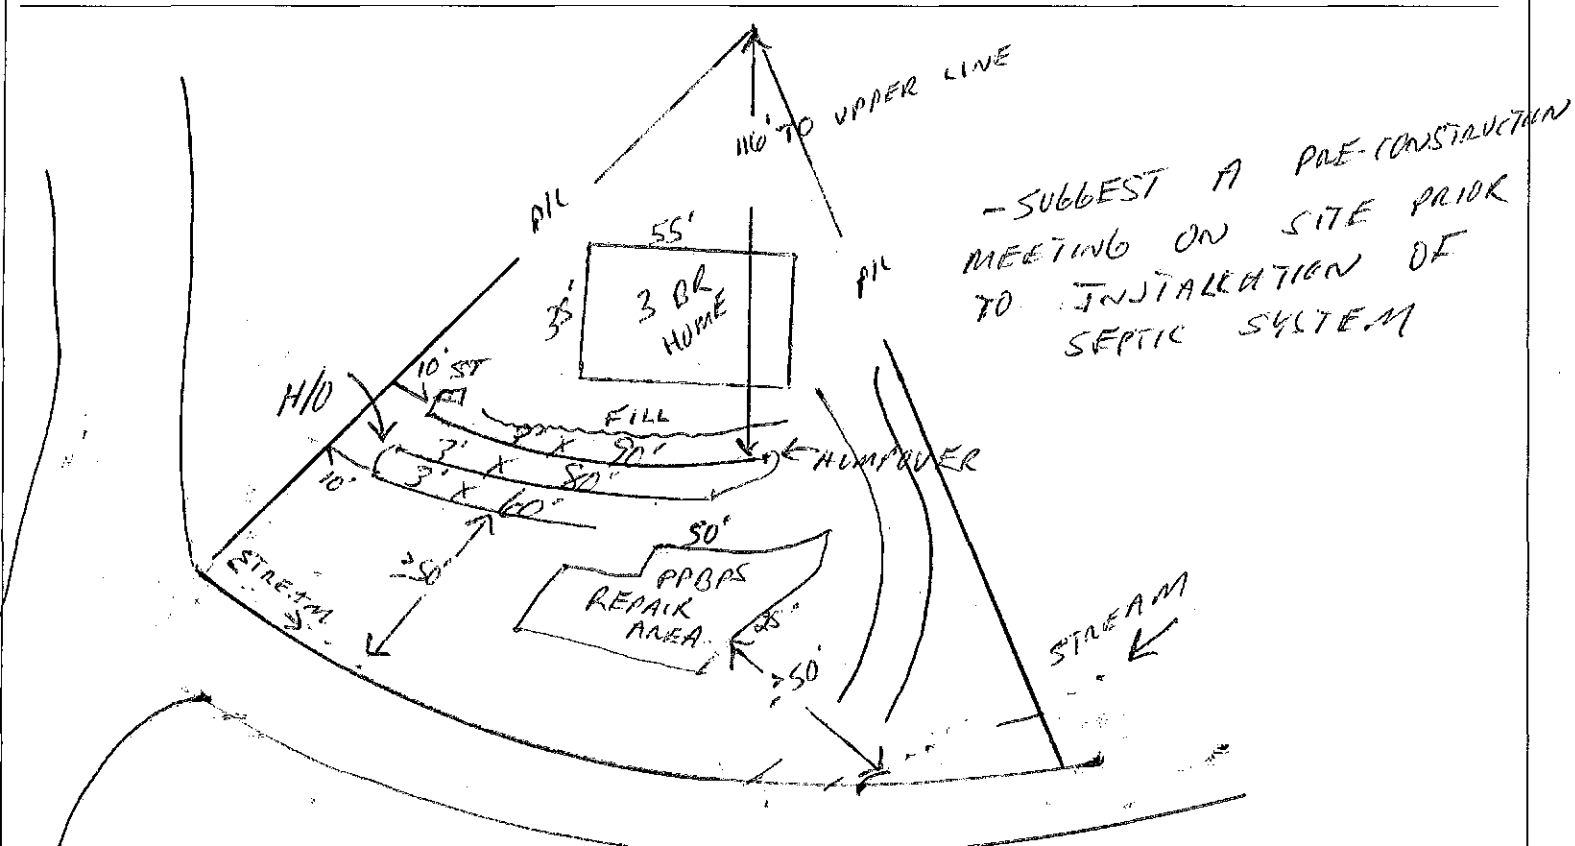 116' TO UPPER LINE
- SUGGEST A PRE-CONSTRUCTION
MEETING ON SITE PRIOR
TO INSTALLATION OF
SEPTIC SYSTEM
P/L
P/L
55'
35'
3 BR
HOME
10'
ST
H/O
FILL
3' X 90'
3' X 80'
3' X 60'
HUMPOVER
10'
≥50'
STREAM
50'
PPBPS
REPAIR
AREA
25'
≥50'
STREAM